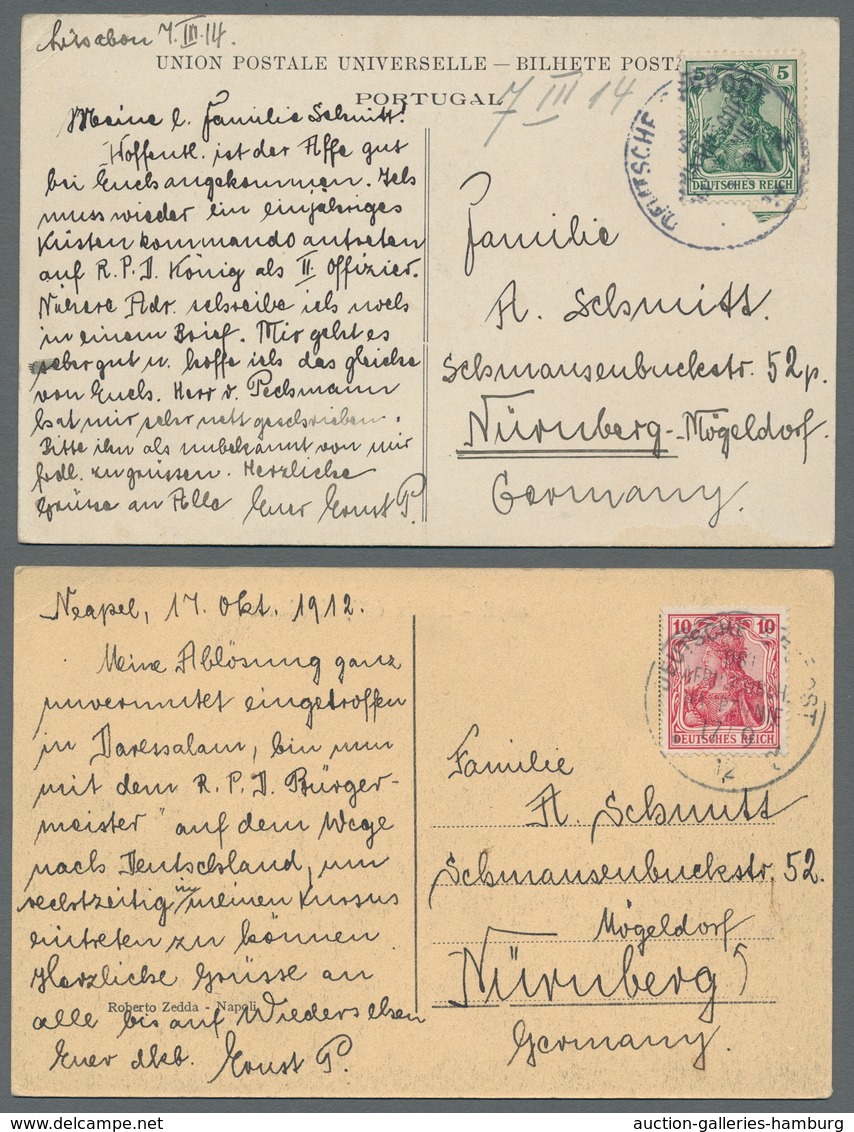 Lissabon 7.III.14.
UNION POSTALE UNIVERSELLE — BILHETE POSTA
PORTUGAL
7 III 14
Meine l. Familie Schmitt!
Hoffentl. ist der Affe gut
bei Euch angekommen. Ich
muss wieder ein einjähriges
Küstenkommando antreten
auf R.P.D. König als II. Offizier.
Nähere Adr. schreibe ich noch
in einem Brief. Mir geht es
sehr gut u. hoffe ich das gleiche
von Euch. Herr v. Pechmann
hat mir sehr nett geschrieben.
Bitte ihn als unbekannt von mir
frdl. zu grüssen. Herzliche
Grüsse an Alle Euer Ernst P.
5
DEUTSCHES REICH
DEUTSCHE SEEPOST
Familie
A. Schmitt.
Schmausenbuckstr. 52p.
Nürnberg-Mögeldorf.
Germany.
Neapel, 17. Okt. 1912.
Meine Ablösung ganz
unvermutet eingetroffen
in Daressalam, bin nun
mit dem R.P.D. Bürger-
meister" auf dem Wege
nach Deutschland, um
rechtzeitig in meinen Kursus
eintreten zu können
Herzliche Grüsse an
alle bis auf Wiedersehen
Euer dkb. Ernst P.
Roberto Zedda - Napoli
10 10
DEUTSCHES REICH
DEUTSCHE SEEPOST
17 10
12
Familie
A. Schmitt
Schmausenbuckstr. 52.
Mögeldorf
Nürnberg
Germany.
auction-galleries-hamburg